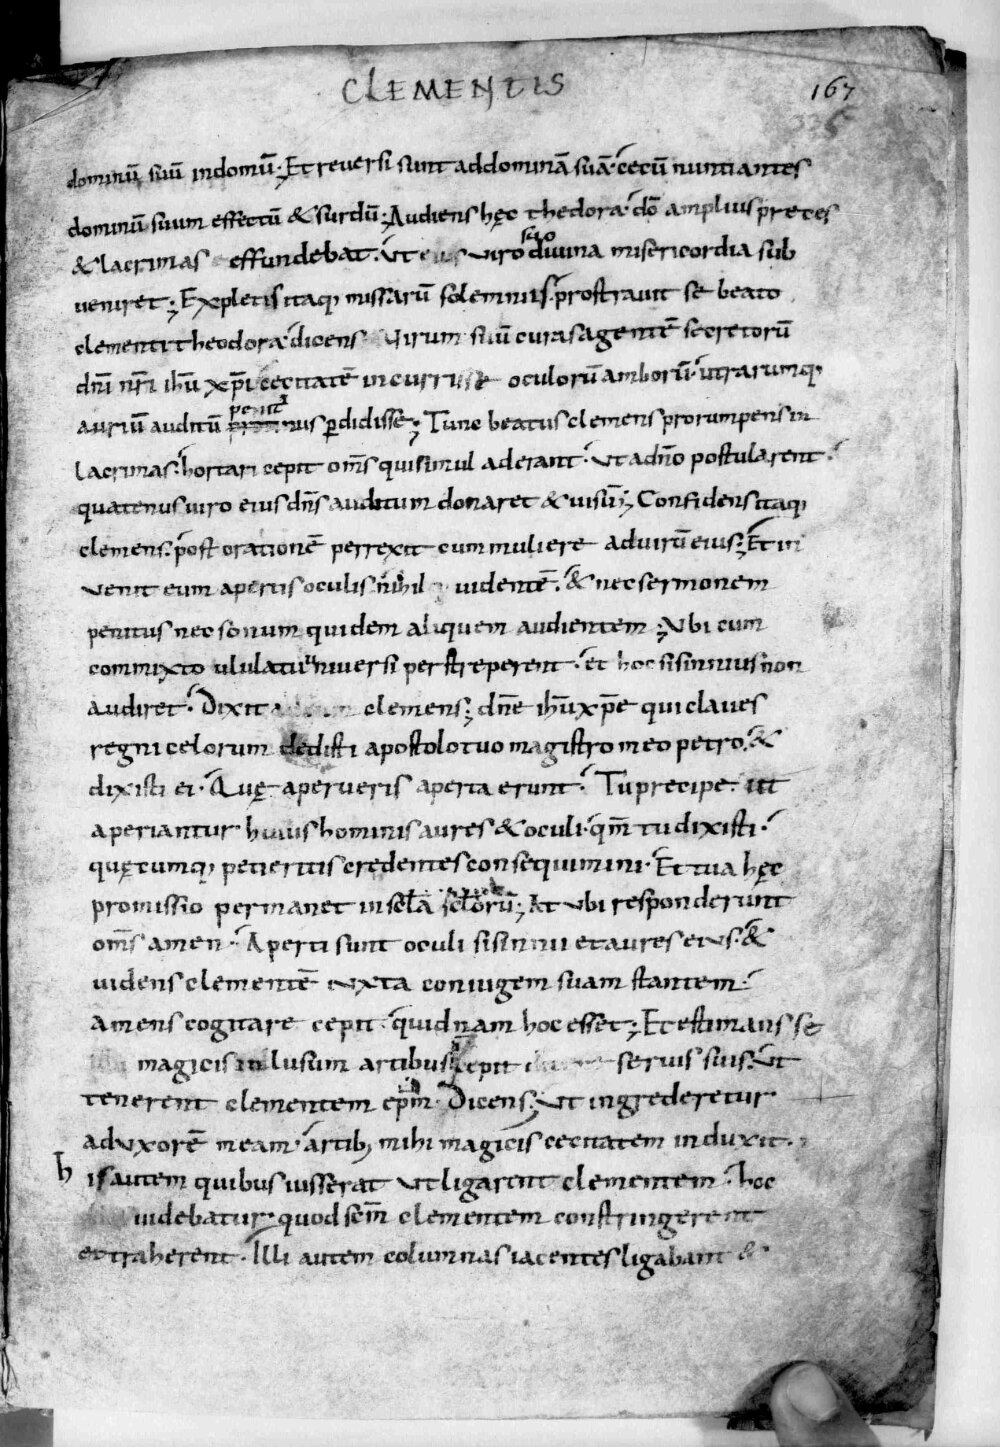 CLEMENTIS
167
335
dominū suū in domū. Et reversi sunt ad dominā suā cecū nuntiantes
dominū suum effectū & surdū; Audiens hęc thedora dō amplius preces
& lacrimas effundebat. Ut viro suo divina misericordia sub
veniret; Expletis itaq; missarū solemniis. prostravit se beato
clementi theodora dicens Virum suū curas agentē secretorū
dn̄i nr̄i ih̄u xp̄i cecitatē incurrisse oculorū amborū. utrarumq;
auriū auditū penit' nus ꝑdidisse; Tunc beatus clemens prorumpens in
lacrimas. hortari cepit om̄s qui simul aderant. Ut a dn̄o postularent.
quatenus viro eius dn̄s auditum donaret & visū; Confidens itaq;
clemens. post orationē perrexit cum muliere ad virū eius; Et in
venit eum apertis oculis nihil videntē. & nec sermonem
penitus nec sonum quidem aliquem audientem; Ubi cum
commixto ululatu universi perstreperent. et hoc sisinnius non
audiret. Dixit clemens; dn̄e ih̄u xp̄e qui claves
regni celorum dedisti apostolo tuo magistro meo petro. &
dixisti ei. Quę aperueris aperta erunt. Tu precipe. ut
aperiantur huius hominis aures & oculi. qm̄ tu dixisti.
quęcumq; petieritis credentes consequimini. Et tua hęc
promissio permanet in scl̄a scl̄orū; At ubi responderunt
om̄s amen. Aperti sunt oculi sisinnii et aures eius. &
videns clementē iuxta coniugem suam stantem.
amens cogitare cepit. quidnam hoc esset; Et estimans se
magicis inlusum artibus cepit servis suis. Ut
tenerent clementem ep̄m. Dicens; Ut ingrederetur
ad uxorē meam. artib; mihi magicis cecitatem induxit.
his autem quibus iusserat ut ligarent clementem. hoc
videbatur. quod sem̄ clementem constringerent
et traherent. Illi autem columnas iacentes ligabant &